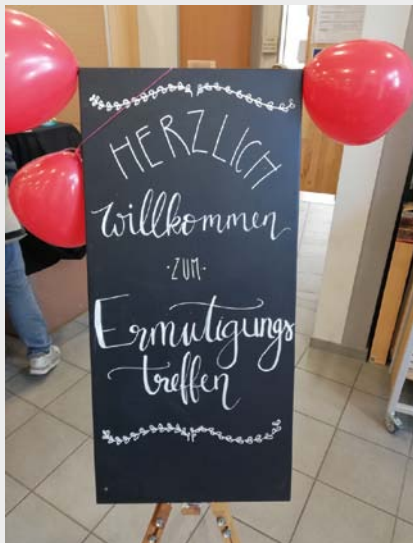 HERZLICH
willkommen
·ZUM·
Ermutigungs
treffen